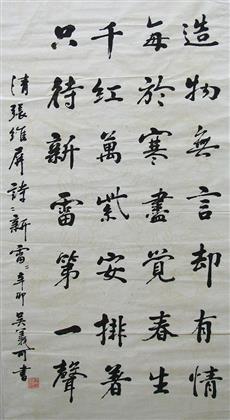 造物無言却有情
每於寒盡覺春生
千紅萬紫安排着
只待新雷第一聲
清張維屏詩新雷辛卯吳義可書